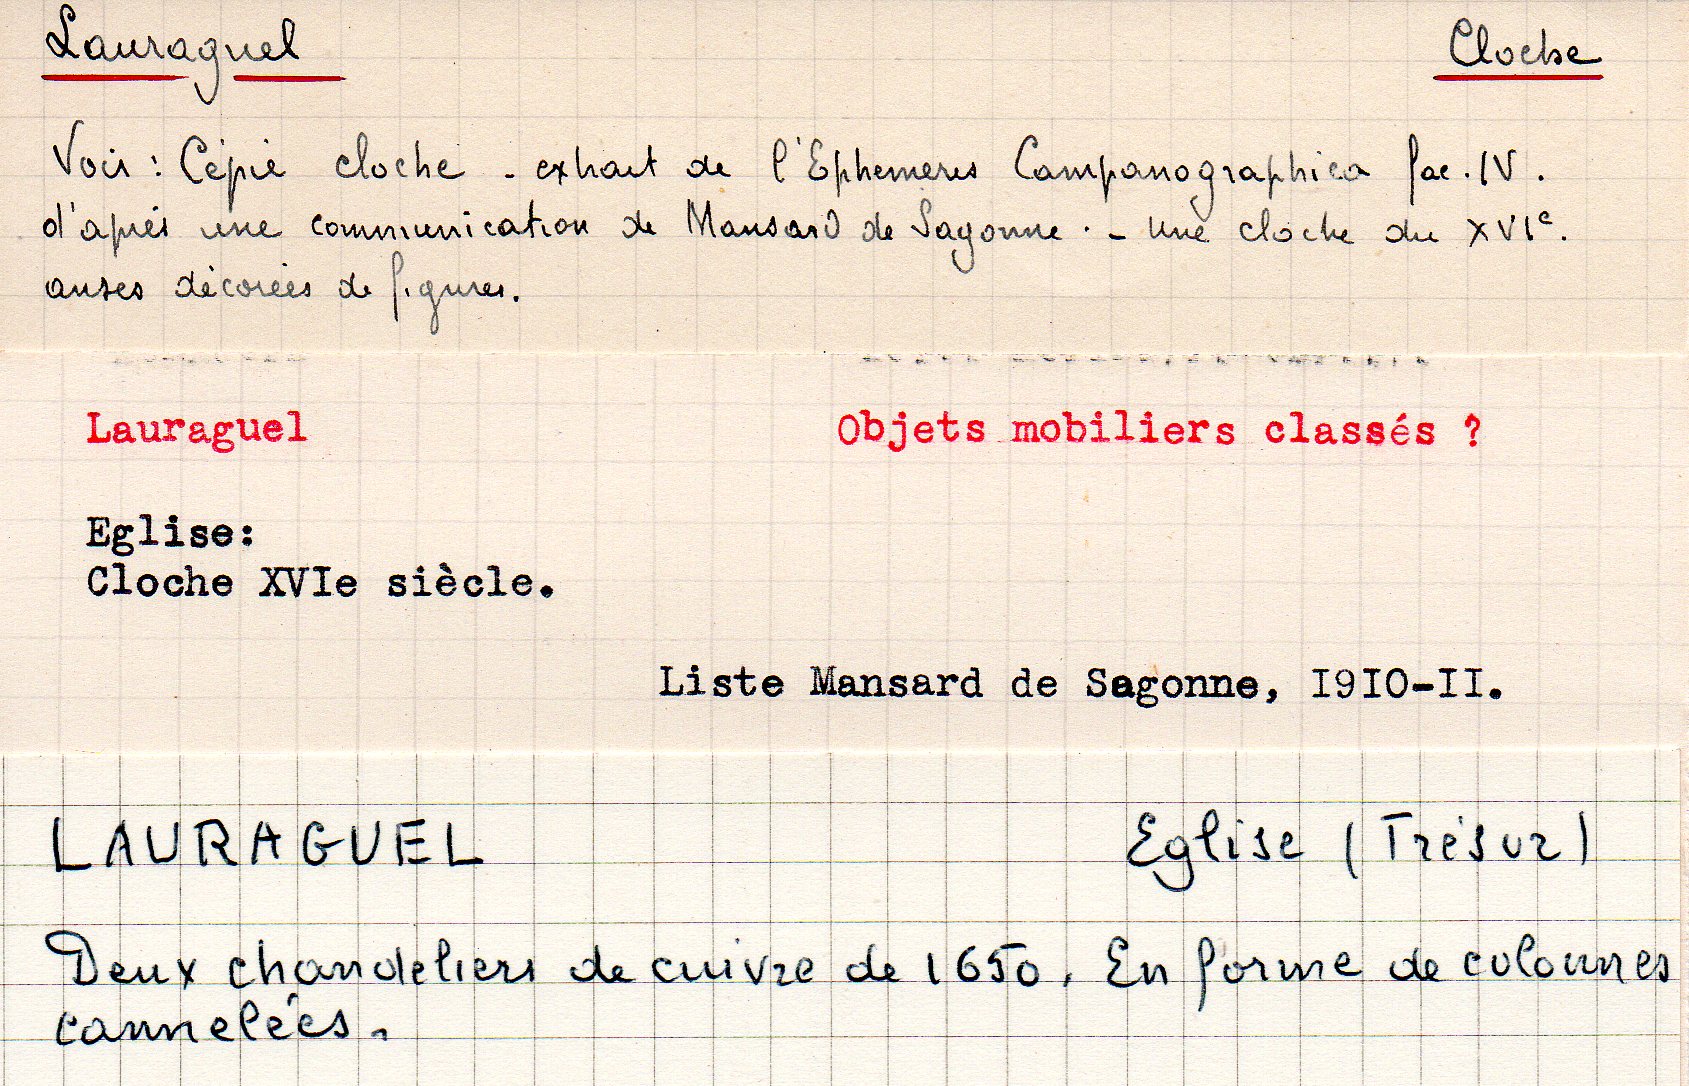 Lauraguel Cloche
Voir : Cépie cloche - extrait de l'Ephemeres Campanographica fac. IV.
d'après une communication de Mansard de Sagonne. - Une cloche du XVIe.
anses décorées de figures.
Lauraguel Objets mobiliers classés ?
Eglise:
Cloche XVIe siècle.
Liste Mansard de Sagonne, I9IO-II.
LAURAGUEL Eglise (Trésor)
Deux chandeliers de cuivre de 1650. En forme de colonnes
cannelées.